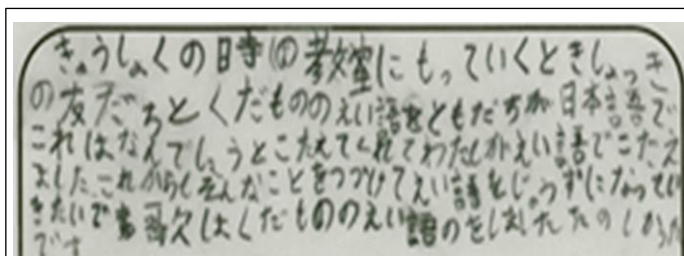 きゅうしょくの時の教室にもっていくときしょっき
の友だちとくだもののえい語をともだちが日本語で
これはなんでしょうとこたえてくれてわたしがえい語でこたえ
ました。これからもそんなことをつづけてえい語をじょうずになってい
きたいです。歌はくだもののえい語のをしました。たのしかった
です